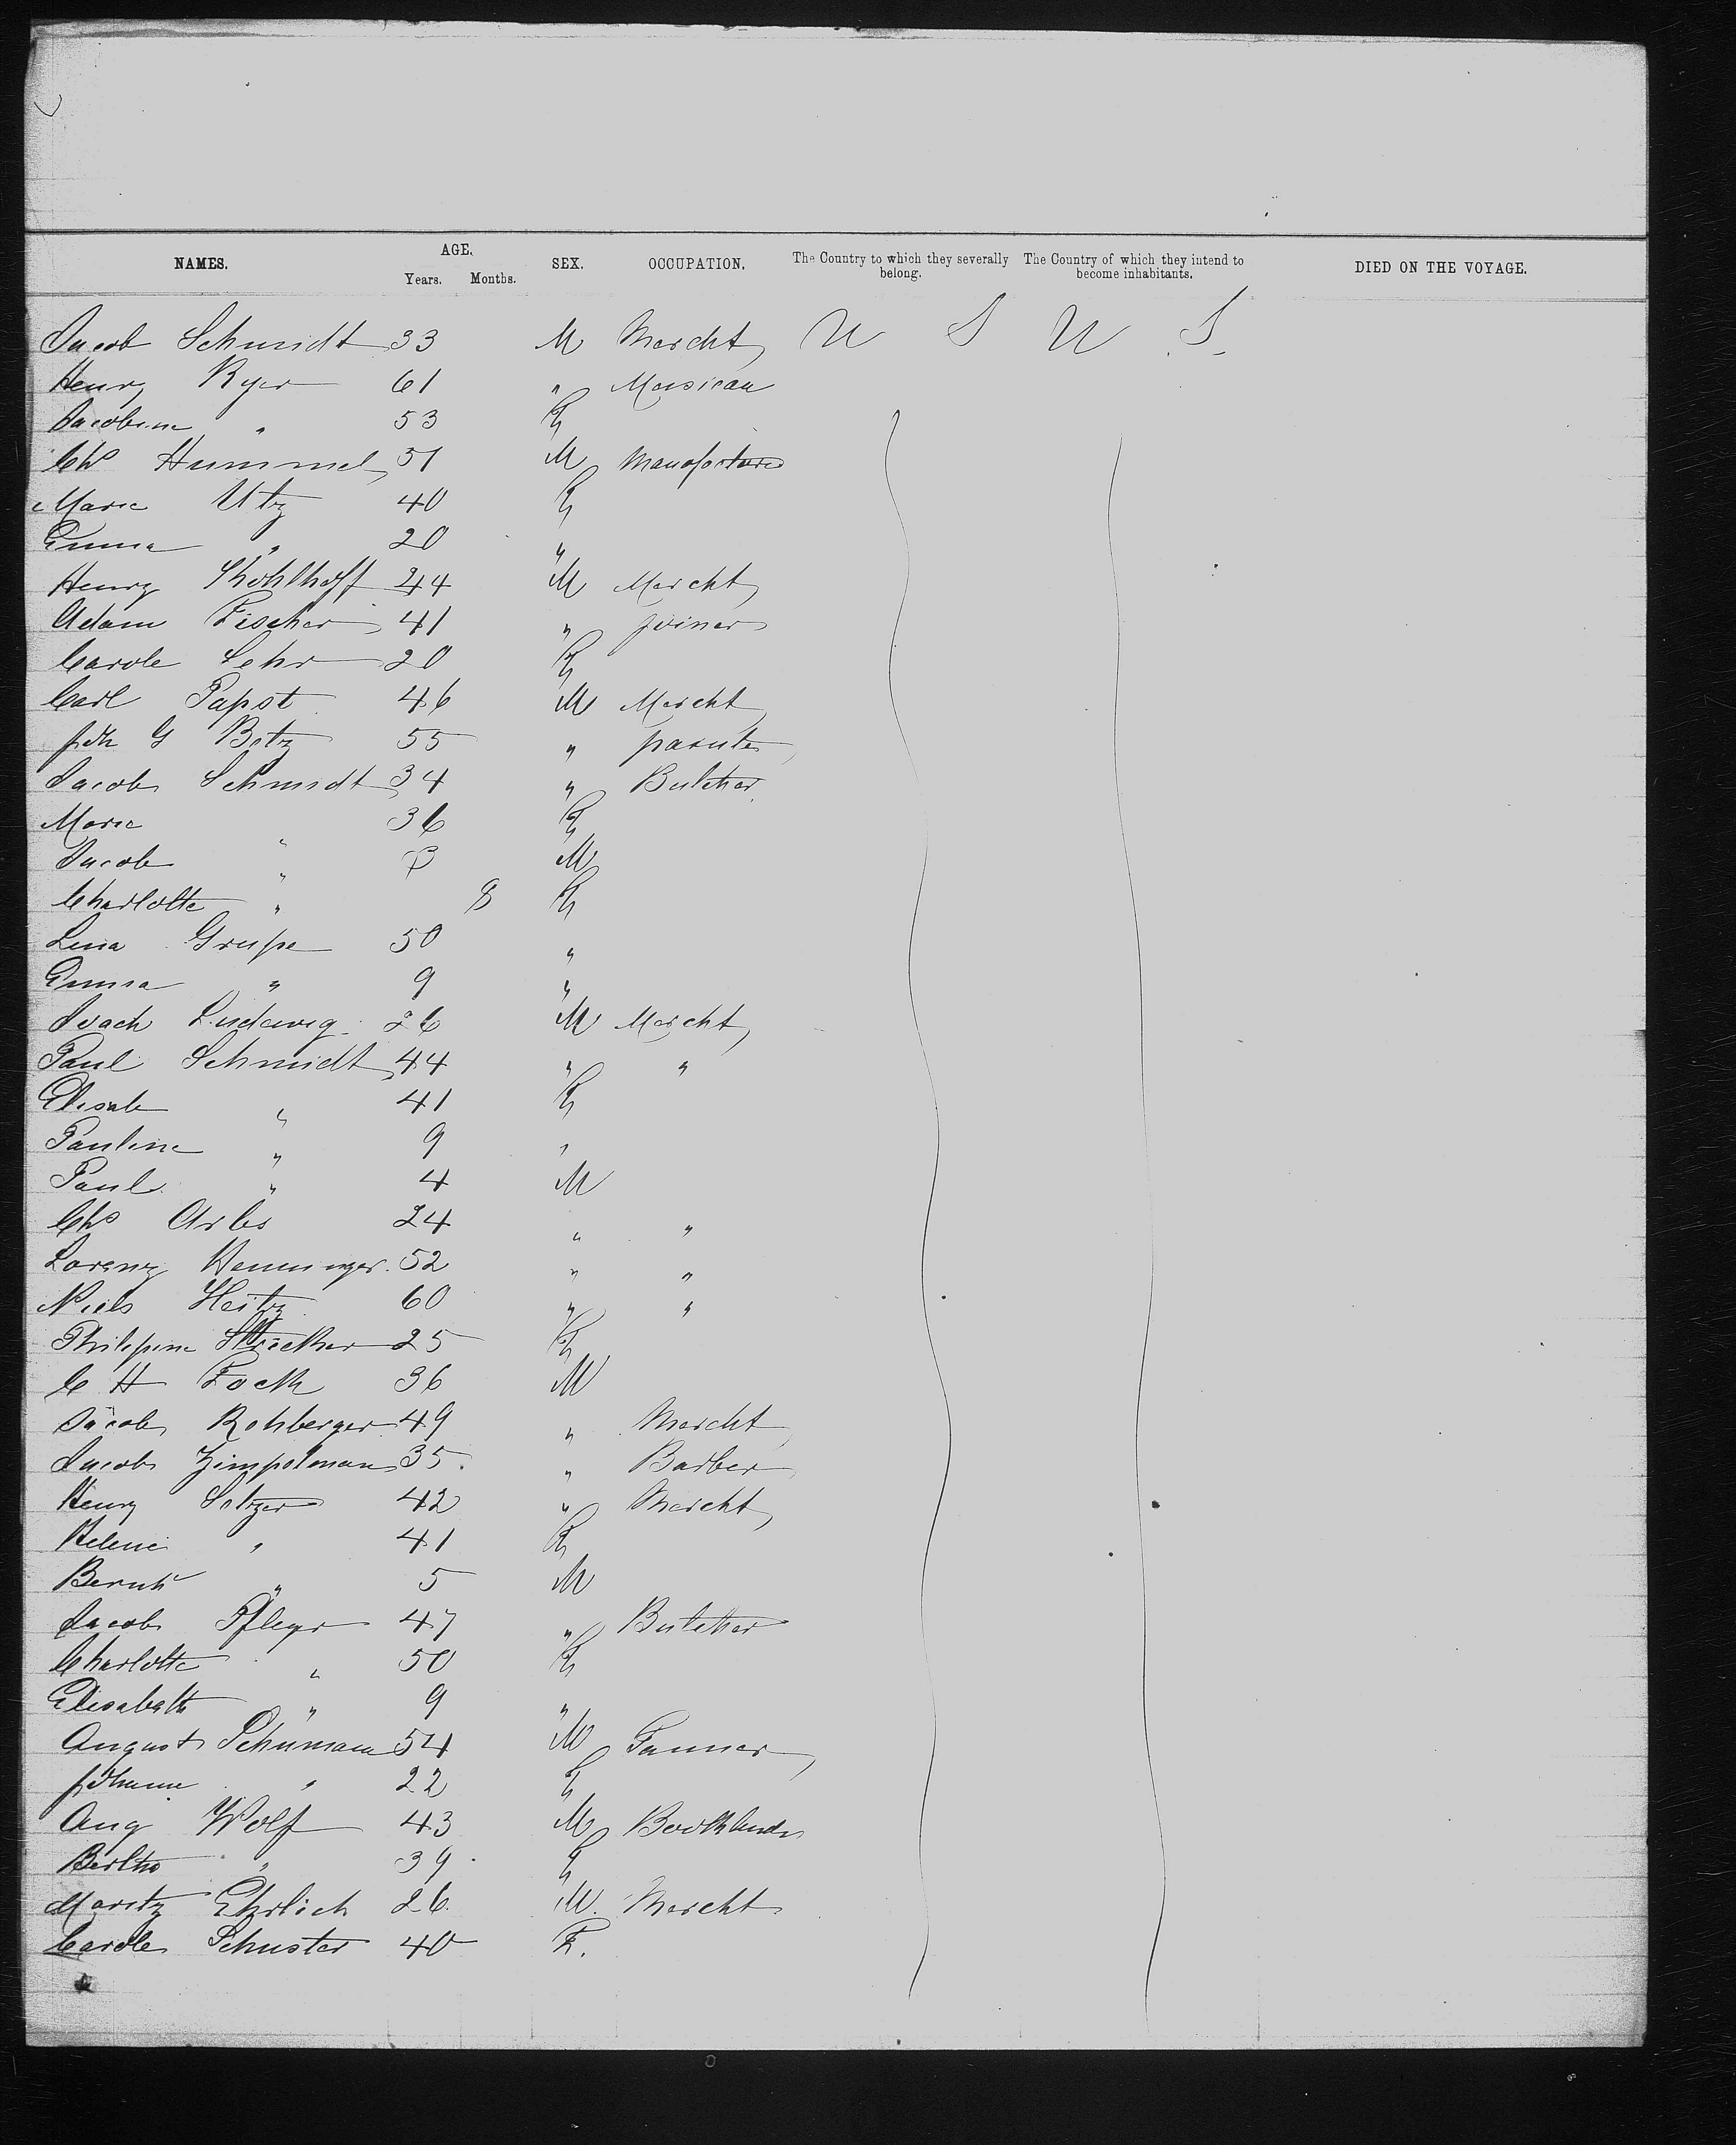 NAMES. AGE. Years. Months. SEX. OCCUPATION. The Country to which they severally belong. The Country of which they intend to become inhabitants. DIED ON THE VOYAGE.
Jacob Schmidt 33 M Mercht U S U S
Henry Ryer 61 " Musican
Jacobine " 53 F
Chs Hummel 51 M
Marie Utz 40 F
Emma " 20 "
Henry 44 M Mercht
Adam Fischer 41 " joiner
Carole Lehr 20 F
Carl Papst 46 M Mercht
Joh G Betz 55 "
Jacob Schmidt 34 " Butcher
Marie " 36 F
Jacob " M
Charlotte " 8 F
Lina Grupe 50 "
Emma " 9 "
Ludewig 26 M Mercht
Paul Schmidt 44 " "
Elisab " 41 F
Pauline " 9 "
Paul " 4 M
Chs Arles 24 " "
Lorenz Henninger 52 " "
Niels Heitz 60 " "
Philipine 25 F
C H Fock 36 M
Jacob Rohberger 49 " Mercht
Jacob Zimpelman 35 " Barber
Henry Selzer 42 " Mercht
Helene " 41 F
Bernh " 5 M
Jacob Pfleger 47 " Butcher
Charlotte " 50 F
Elisabeth " 9 "
August Schumann 54 M
Johanne " 22 F
Aug Wolf 43 M
Bertha " 39 F
Moritz Ehrlich 26 M. Mercht
Carole Schuster 40 F.